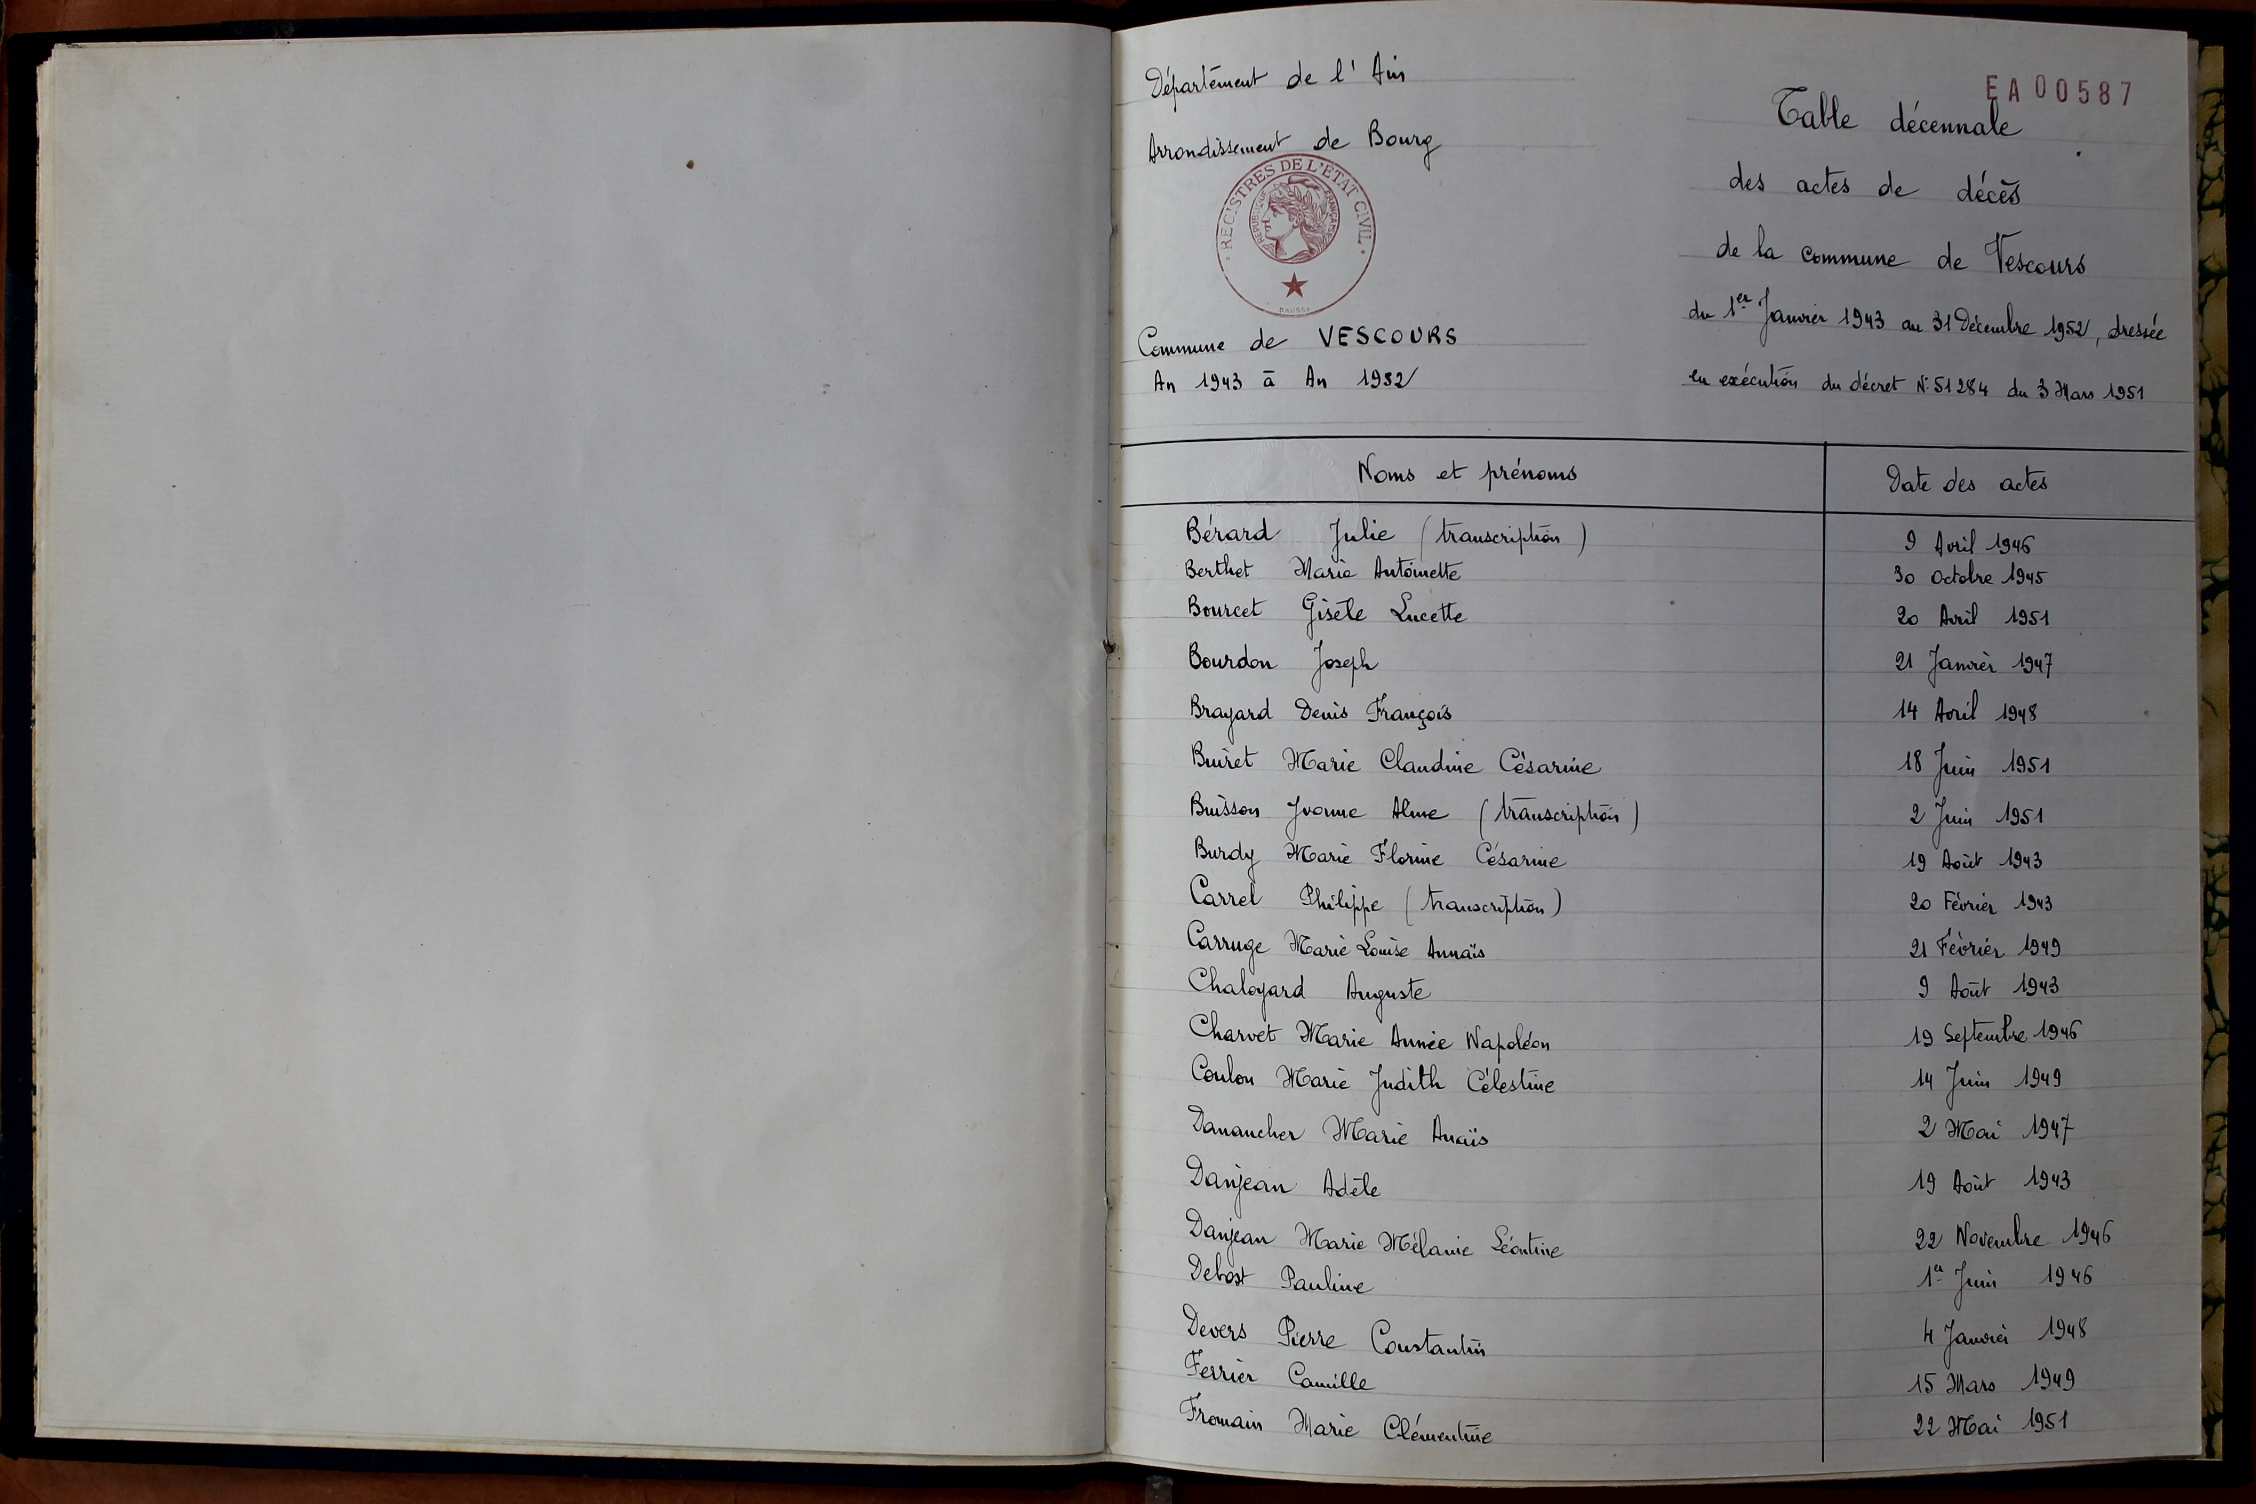 EA00587
Département de l'Ain
Arrondissement de Bourg
REGISTRES DE L'ETAT CIVIL
REPUBLIQUE FRANÇAISE
Commune de VESCOURS
An 1943 à An 1952
Table décennale
des actes de décès
de la commune de Vescours
du 1er Janvier 1943 au 31 Décembre 1952, dressée
en exécution du décret N° 51284 du 3 Mars 1951
Noms et prénoms Date des actes
Bérard Julie (transcription) 9 Avril 1946
Berthet Marie Antoinette 30 Octobre 1945
Bourcet Gisèle Lucette 20 Avril 1951
Bourdon Joseph 21 Janvier 1947
Brayard Denis François 14 Avril 1948
Buiret Marie Claudine Césarine 18 Juin 1951
Buisson Yvonne Alme (transcription) 2 Juin 1951
Burdy Marie Florine Césarine 19 Août 1943
Carrel Philippe (transcription) 20 Février 1943
Carruge Marie Louise Annaïs 21 Février 1949
Chaloyard Auguste 9 Août 1943
Charvet Marie Année Napoléon 19 Septembre 1946
Coulon Marie Judith Célestine 14 Juin 1949
Danancher Marie Anaïs 2 Mai 1947
Danjean Adèle 19 Août 1943
Danjean Marie Mélanie Léontine 22 Novembre 1946
Debost Pauline 1er Juin 1946
Devers Pierre Constantin 4 Janvier 1948
Ferrier Camille 15 Mars 1949
Fromain Marie Clémentine 22 Mai 1951